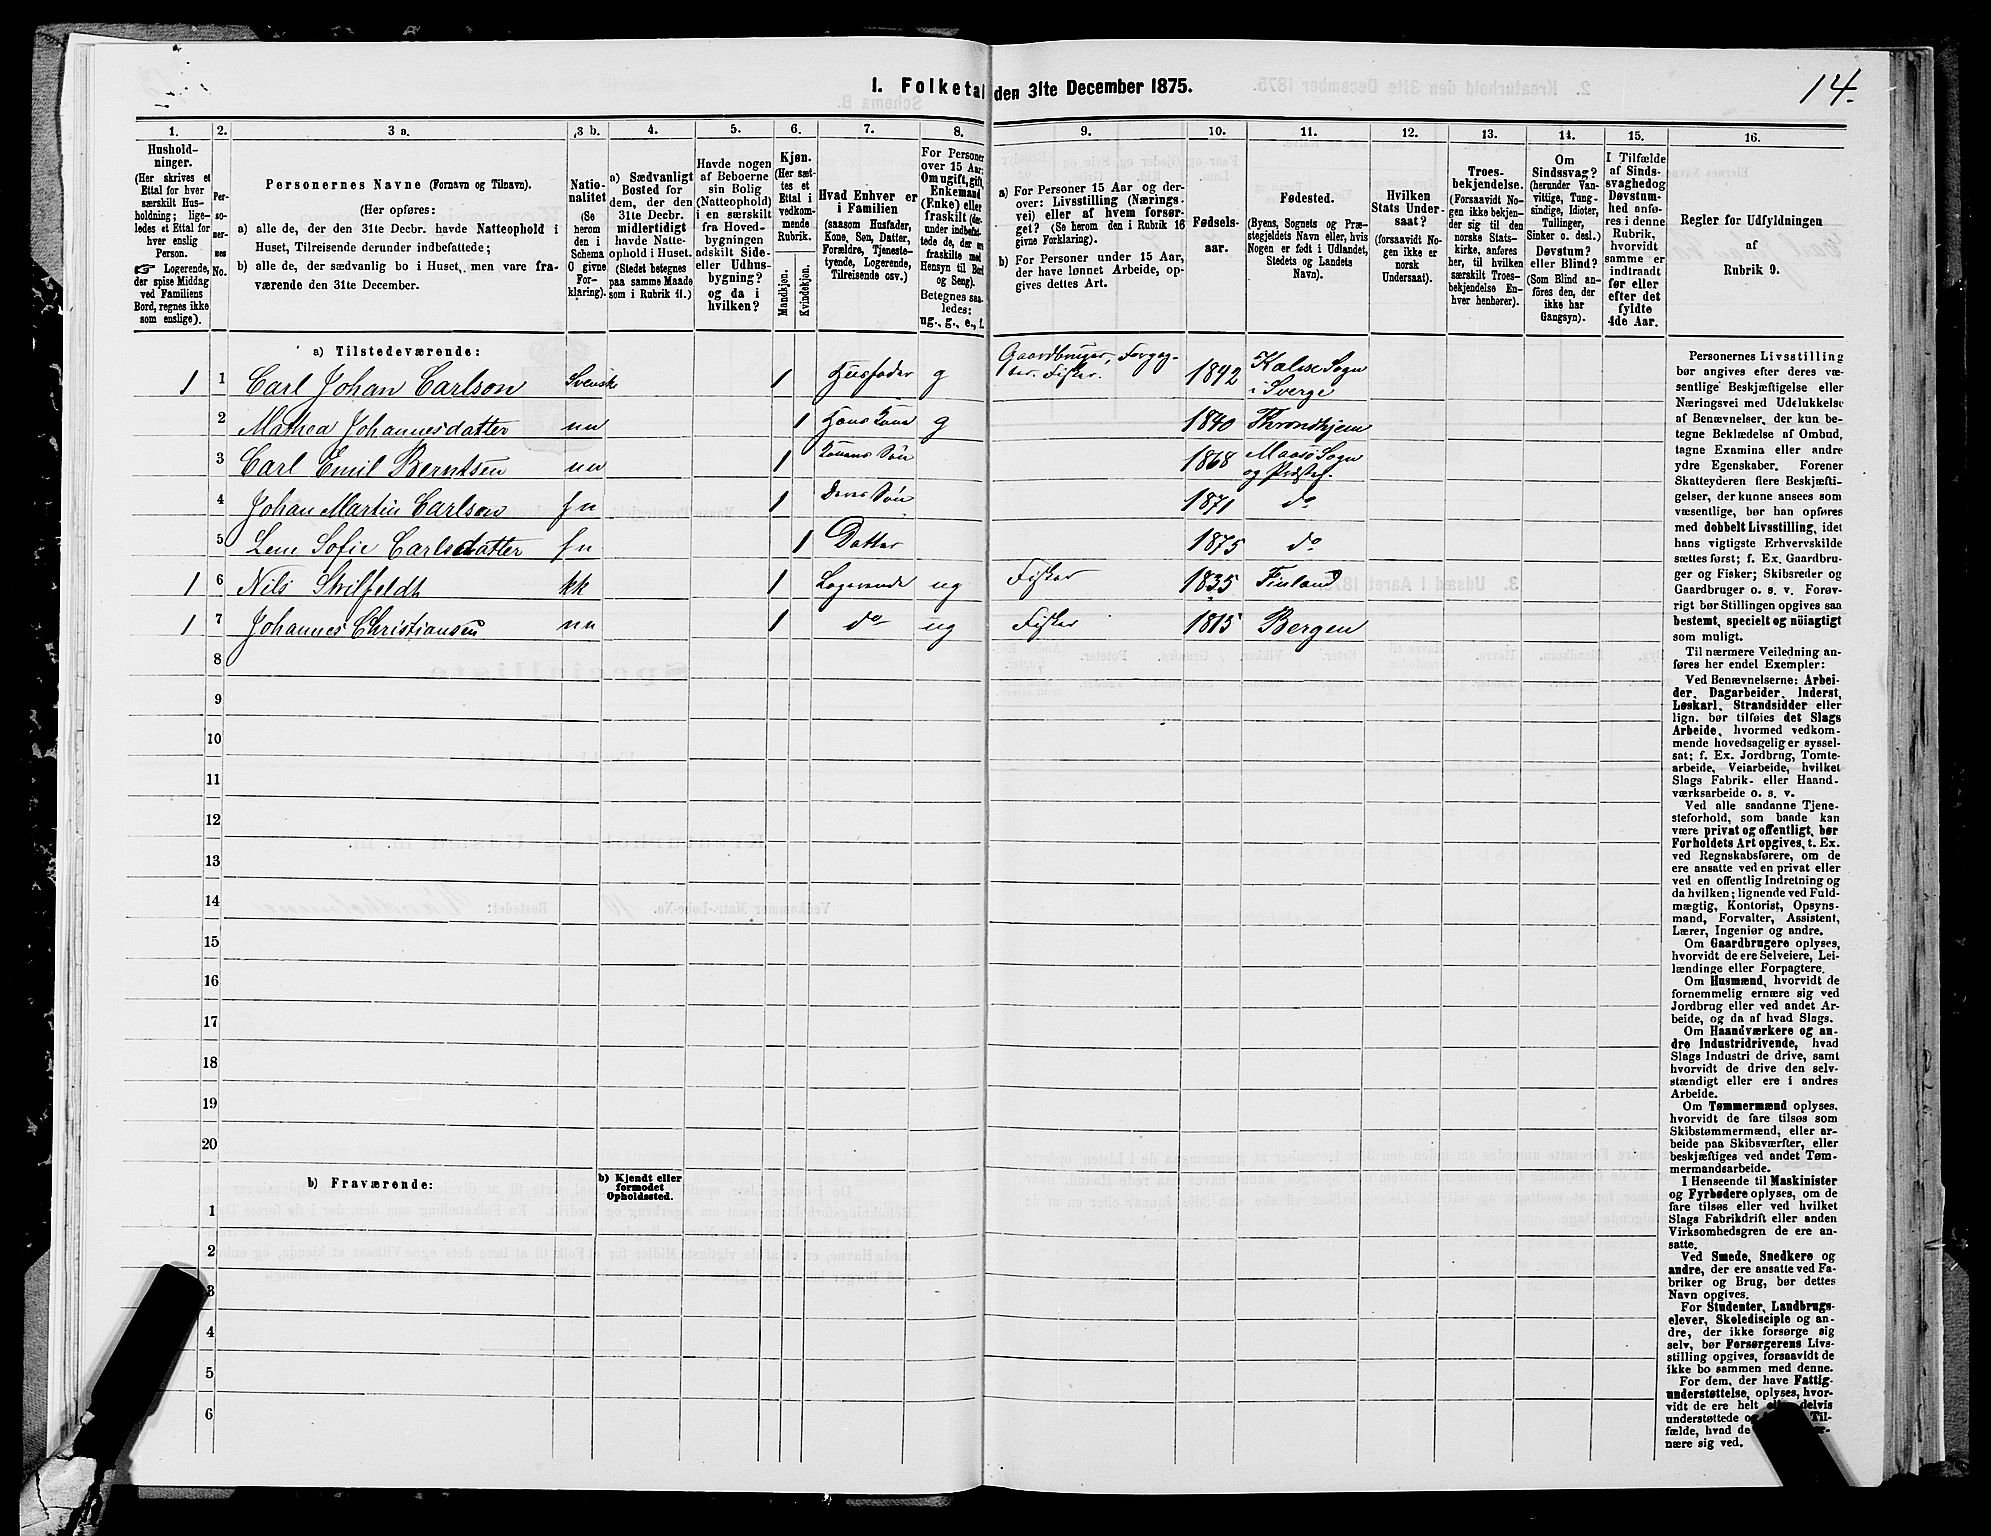 14.
1. Folketal den 31te December 1875.
1. 2. 3 a. 3 b. 4. 5. 6. 7. 8. 9. 10. 11. 12. 13. 14. 15. 16.
Hushold-
ninger.
(Her skrives et
Ettal for hver
særskilt Hus-
holdning; lige-
ledes et Ettal for
hver enslig
Person.
☞ Logerende,
der spise Middag
ved Familiens
Bord, regnes ikke
som enslige).
Per-
so-
ner-
nes
No.
Personernes Navne (Fornavn og Tilnavn).
(Her opføres:
a) alle de, der den 31te Decbr. havde Natteophold i
Huset, Tilreisende derunder indbefattede;
b) alle de, der sædvanlig bo i Huset, men vare fra-
værende den 31te December.
Natio-
nalitet
(Se
herom
den i
Schema
C givne
For-
klaring).
a) Sædvanligt
Bosted for
dem, der den
31te Decbr.
midlertidigt
havde Natte-
ophold i Huset.
(Stedet betegnes
paa samme Maade
som i Rubrik 11.)
Havde nogen
af Beboerne
sin Bolig
(Natteophold)
i en særskilt
fra Hoved-
bygningen
adskilt Side-
eller Udhus-
bygning?
og da i
hvilken?
Kjøn.
(Her sæt-
tes et
Ettal i
vedkom-
mende
Rubrik.
Mandkjøn.
Kvindekjøn.
Hvad Enhver er
i Familien
(saasom Husfader,
Kone, Søn, Datter,
Forældre, Tjeneste-
tyende, Logerende,
Tilreisende osv.)
For Personer
over 15 Aar:
Om ugift, gift,
Enkemand
(Enke) eller
fraskilt (der-
under indbefat-
tede de, der ere
fraskilte med
Hensyn til Bord
og Seng).
Betegnes saa-
ledes:
ug., g., e., f.
a) For Personer 15 Aar og der-
over: Livsstilling (Nærings-
vei) eller af hvem forsør-
get? (Se herom den i Rubrik 16
givne Forklaring).
b) For Personer under 15 Aar,
der have lønnet Arbeide, op-
gives dettes Art.
Fødsels-
aar.
Fødested.
(Byens, Sognets og Præ-
stegjeldets Navn eller, hvis
Nogen er født i Udlandet,
Stedets og Landets
Navn).
Hvilken
Stats Under-
saat?
(forsaavidt No-
gen ikke er
norsk
Undersaat).
Troes-
bekjendelse.
(Forsaavidt No-
gen ikke bekjen-
der sig til den
norske Stats-
kirke, anføres
her, til hvilken
særskilt Troes-
bekjendelse En-
hver henhører).
Om
Sindssvag?
(herunder Van-
vittige, Tung-
sindige, Idioter,
Tullinger,
Sinker o. desl.)
Døvstum?
eller Blind?
(Som Blind an-
føres den, der
ikke har
Gangsyn).
I Tilfælde
af Sinds-
svaghed og
Døvstum-
hed anfø-
res i denne
Rubrik,
hvorvidt
samme er
indtraadt
før eller
efter det
fyldte
4de Aar.
Regler for Udfyldningen
af
Rubrik 9.
a) Tilstedeværende:
1 1 Carl Johan Carlson Svensk 1 Husfader g Gaardbruger, Forpag- ter. Fisker. 1842 Sogn i Sverge
2 Mathea Johannesdatter nn 1 Hans Kone g 1840 Throndhjem
3 Carl Emil Berntsen nn 1 Konens Søn 1868 Maasø Sogn og Præstg.
4 Johan Martin Carlson fn 1 Deres Søn 1871 do
5 Sofie Carlsdatter fn 1 Datter 1875 do
1 6 Nils kk 1 Logerende ug Fisker 1835 Finland
1 7 Johannes Christiansen nn 1 do ug Fisker 1815 Bergen
8
9
10
11
12
13
14
15
16
17
18
19
20
b) Fraværende:
b) Kjendt eller
formodet
Opholdssted.
1
2
3
4
5
6
Personernes Livsstilling
bør angives efter deres væ-
sentlige Beskjæftigelse eller
Næringsvei med Udelukkelse
af Benævnelser, der kun be-
tegne Beklædelse af Ombud,
tagne Examina eller andre
ydre Egenskaber. Forener
Skatteyderen flere Beskjæfti-
gelser, der kunne ansees som
væsentlige, bør han opføres
med dobbelt Livsstilling, idet
hans vigtigste Erhvervskilde
sættes først; f. Ex. Gaardbru-
ger og Fisker; Skibsreder og
Gaardbruger o. s. v. Forøv-
rigt bør Stillingen opgives saa
bestemt, specielt og nøiagtigt
som muligt.
Til nærmere Veiledning an-
føres her endel Exempler:
Ved Benævnelserne: Arbei-
der, Dagarbeider, Inderst,
Løskarl, Strandsidder eller
lign. bør tilføies det Slags
Arbeide, hvormed vedkom-
mende hovedsagelig er syssel-
sat; f. Ex. Jordbrug, Tomte-
arbeide, Veiarbeide, hvilket
Slags Fabrik- eller Haand-
værksarbeide o. s. v.
Ved alle saadanne Tjene-
steforhold, som baade kan
være privat og offentligt, bør
Forholdets Art opgives, t. Ex.
ved Regnskabsførere, om de
ere ansatte ved en privat eller
ved en offentlig Indretning og
da hvilken; lignende ved Fuld-
mægtig, Kontorist, Opsyns-
mand, Forvalter, Assistent,
Lærer, Ingeniør og andre.
Om Gaardbrugere oplyses,
hvorvidt de ere Selveiere, Lei-
lændinge eller Forpagtere.
Om Husmænd, hvorvidt de
fornemmelig ernære sig ved
Jordbrug eller ved andet Ar-
beide, og da af hvad Slags.
Om Haandværkere og an-
dre Industridrivende, hvad
Slags Industri de drive, samt
hvorvidt de drive den selv-
stændigt eller ere i andres
Arbeide.
Om Tømmermænd oplyses,
hvorvidt de fare tilsøs som
Skibstømmermænd, eller ar-
beide paa Skibsværfter, eller
beskjæftiges ved andet Tøm-
mermandsarbeide.
I Henseende til Maskinister
og Fyrbødere oplyses, om de
fare tilsøs eller ved hvilket
Slags Fabrikdrift eller anden
Virksomhedsgren de ere an-
satte.
Ved Smede, Snedkere og
andre, der ere ansatte ved Fa-
briker og Brug, bør dettes
Navn opgives.
For Studenter, Landbrugs-
elever, Skoledisciple og an-
dre, der ikke forsørge sig
selv, bør Forsørgerens Livs-
stilling opgives, forsaavidt de
ikke bo sammen med denne.
For dem, der have Fattig-
understøttelse, oplyses, hvor-
vidt de ere helt eller delvis
understøttede og Til-
fælde, hvad de
nære sig ved.